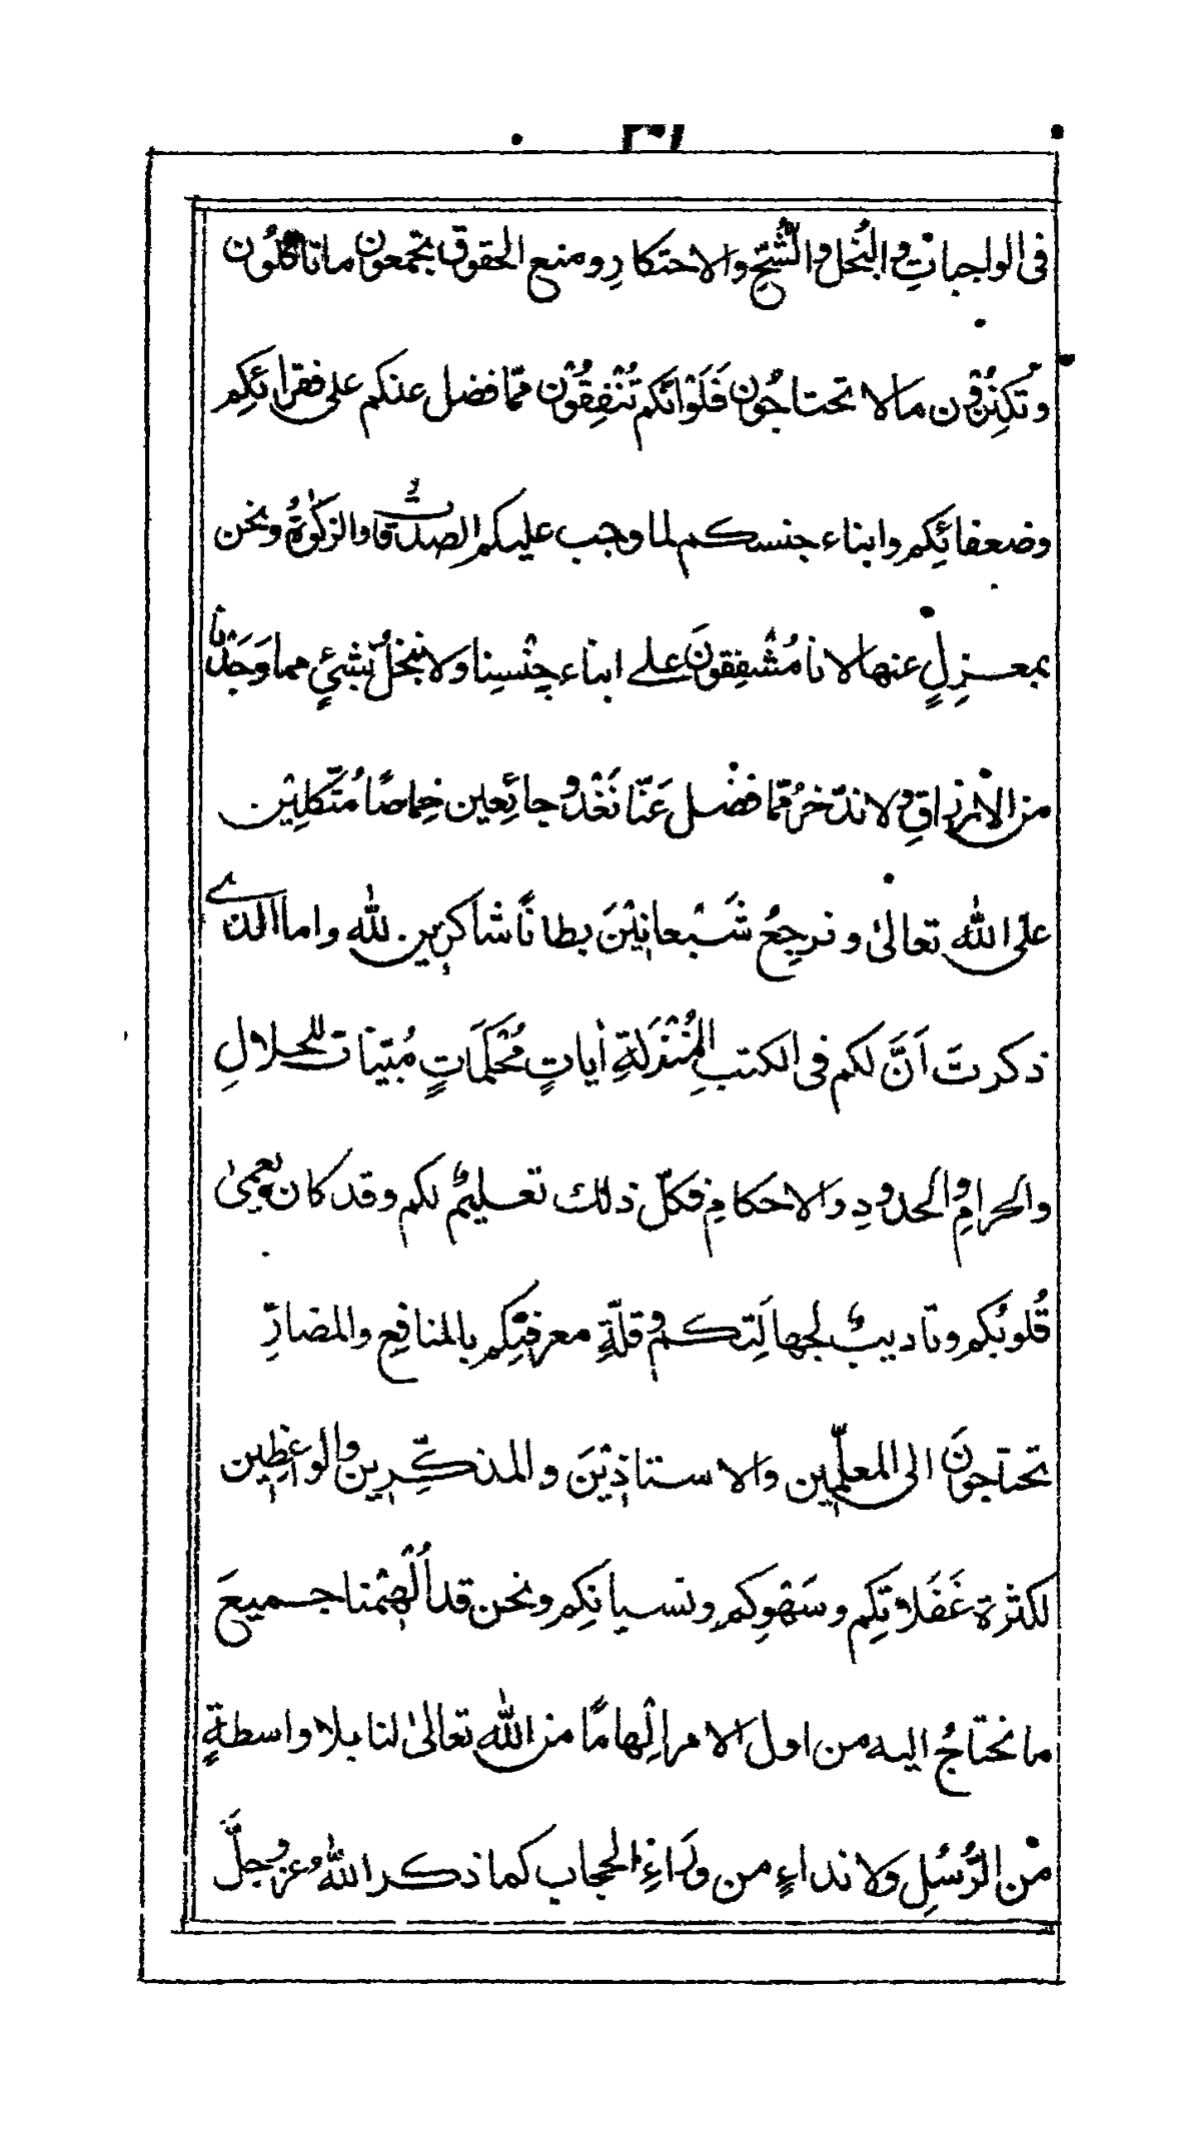 فى الواجباتِ والبُخل والشُّحِّ والاحتكارِ ومنع الحقوق تجمعون ما تاكلُون
وتَكنِزُون مالا تحتاجُون فَلَوْ انّكم تُنْفِقُوْن ممّا فضل عنكم على فقرائكِم
وضعفائكِم وابناء جنسكم لما وجب عليكم الصدقات والزكٰوةُ ونحن
بمعزلٍ عنها لانا مُشْفِقونَ علے ابناء جِنْسِنا ولا نبخلُ بشئٍ مما وَجَدْنا
من الارزاقِ ولا ندّخرُ ممّا فضْل عَنّا نَغْدُو جائِعين خِماصًا مُتَّكلِيْن
على الله تعالىٰ ونرجِعُ شَبْعانِيْنَ بطانًا شاكرِين لله واما الذے
ذكرتَ اَنَّ لكم فى الكتب المُنْزَلةِ اٰياتٍ مُحْكَمَاتٍ مُبيّنات للحلالِ
والحرامِ والحدودِ والاحكامِ فكلّ ذلك تعليمٌ لكم وقد كان بعمىٰ
قُلوبُكم وتاديبٌ لجهالَتِكم وقلّةِ معرفتِكم بالمنافِع والمضارِّ
تحتاجونَ الى المعلّمِين والاستاذِيْنَ والمذكِّرِين والواعِظِين
لكثرة غَفَلاتِكم وسَهْوِكم ونسيانِكم ونحن قد اُلْهِمْنا جميعَ
ما نحتاجُ اليه من اول الامر اِلْهامًا من الله تعالىٰ لنا بلا واسطةٍ
مْن الرُّسُلِ ولا نداءٍ من وَرَاءِ الحجاب كما ذكر اللهُ عز وجلَّ